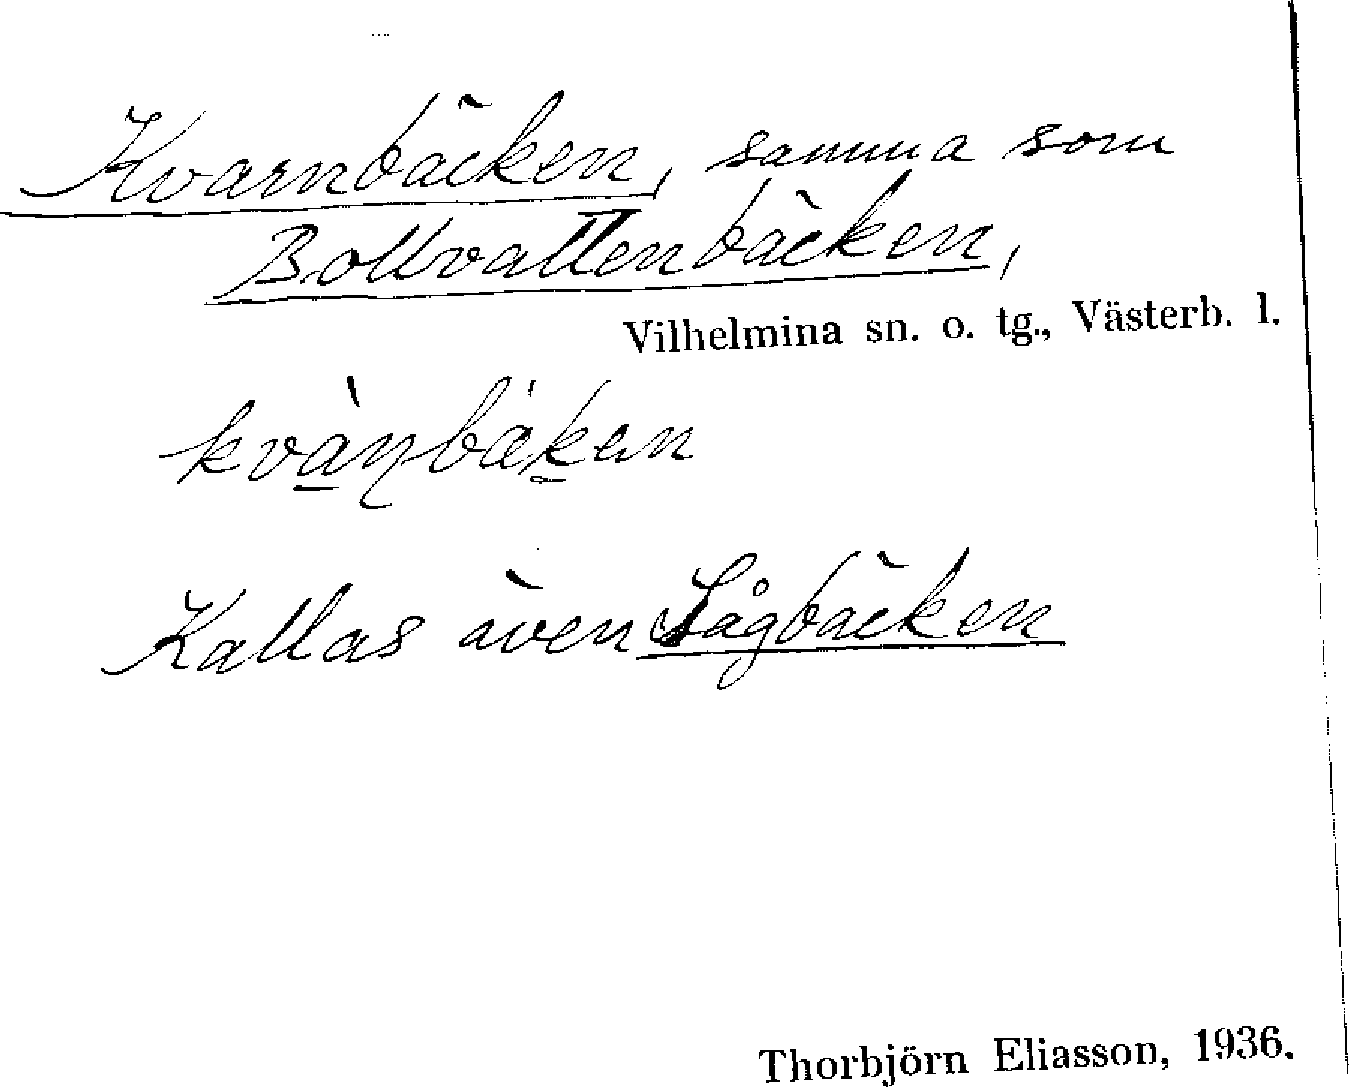 Kvarnbäcken, samma som
Bollvallenbäcken,
Vilhelmina sn. o. tg., Västerb. l.
kvàɳbäken
Kallas även Sågbäcken
Thorbjörn Eliasson, 1936.